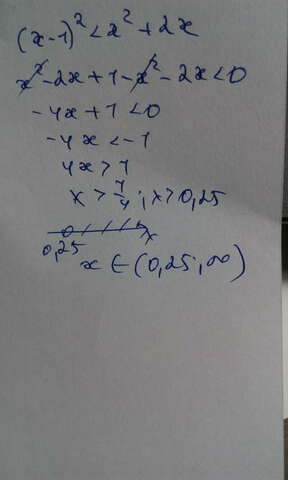 (x-1)² < x² + 2x
x² - 2x + 1 - x² - 2x < 0
-4x + 1 < 0
-4x < -1
4x > 1
x > 1/4 ; x > 0,25
0,25 x
x ∈ (0,25; ∞)